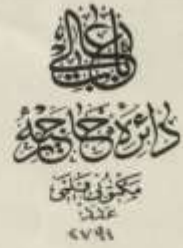 باب عالی
دائرهٔ خارجیه
مكتوبی قلمی
عدد